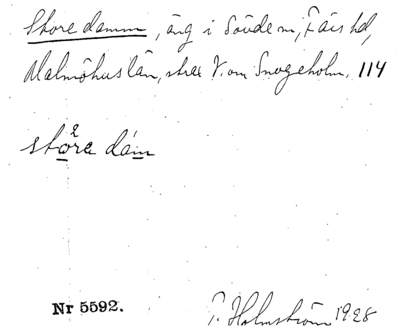 Store damm, äng i Sövde sn, Färs hd,
Malmöhus län, strax V. om Snogeholm. 114
störe dám
Nr 5592.
P. Holmström 1928